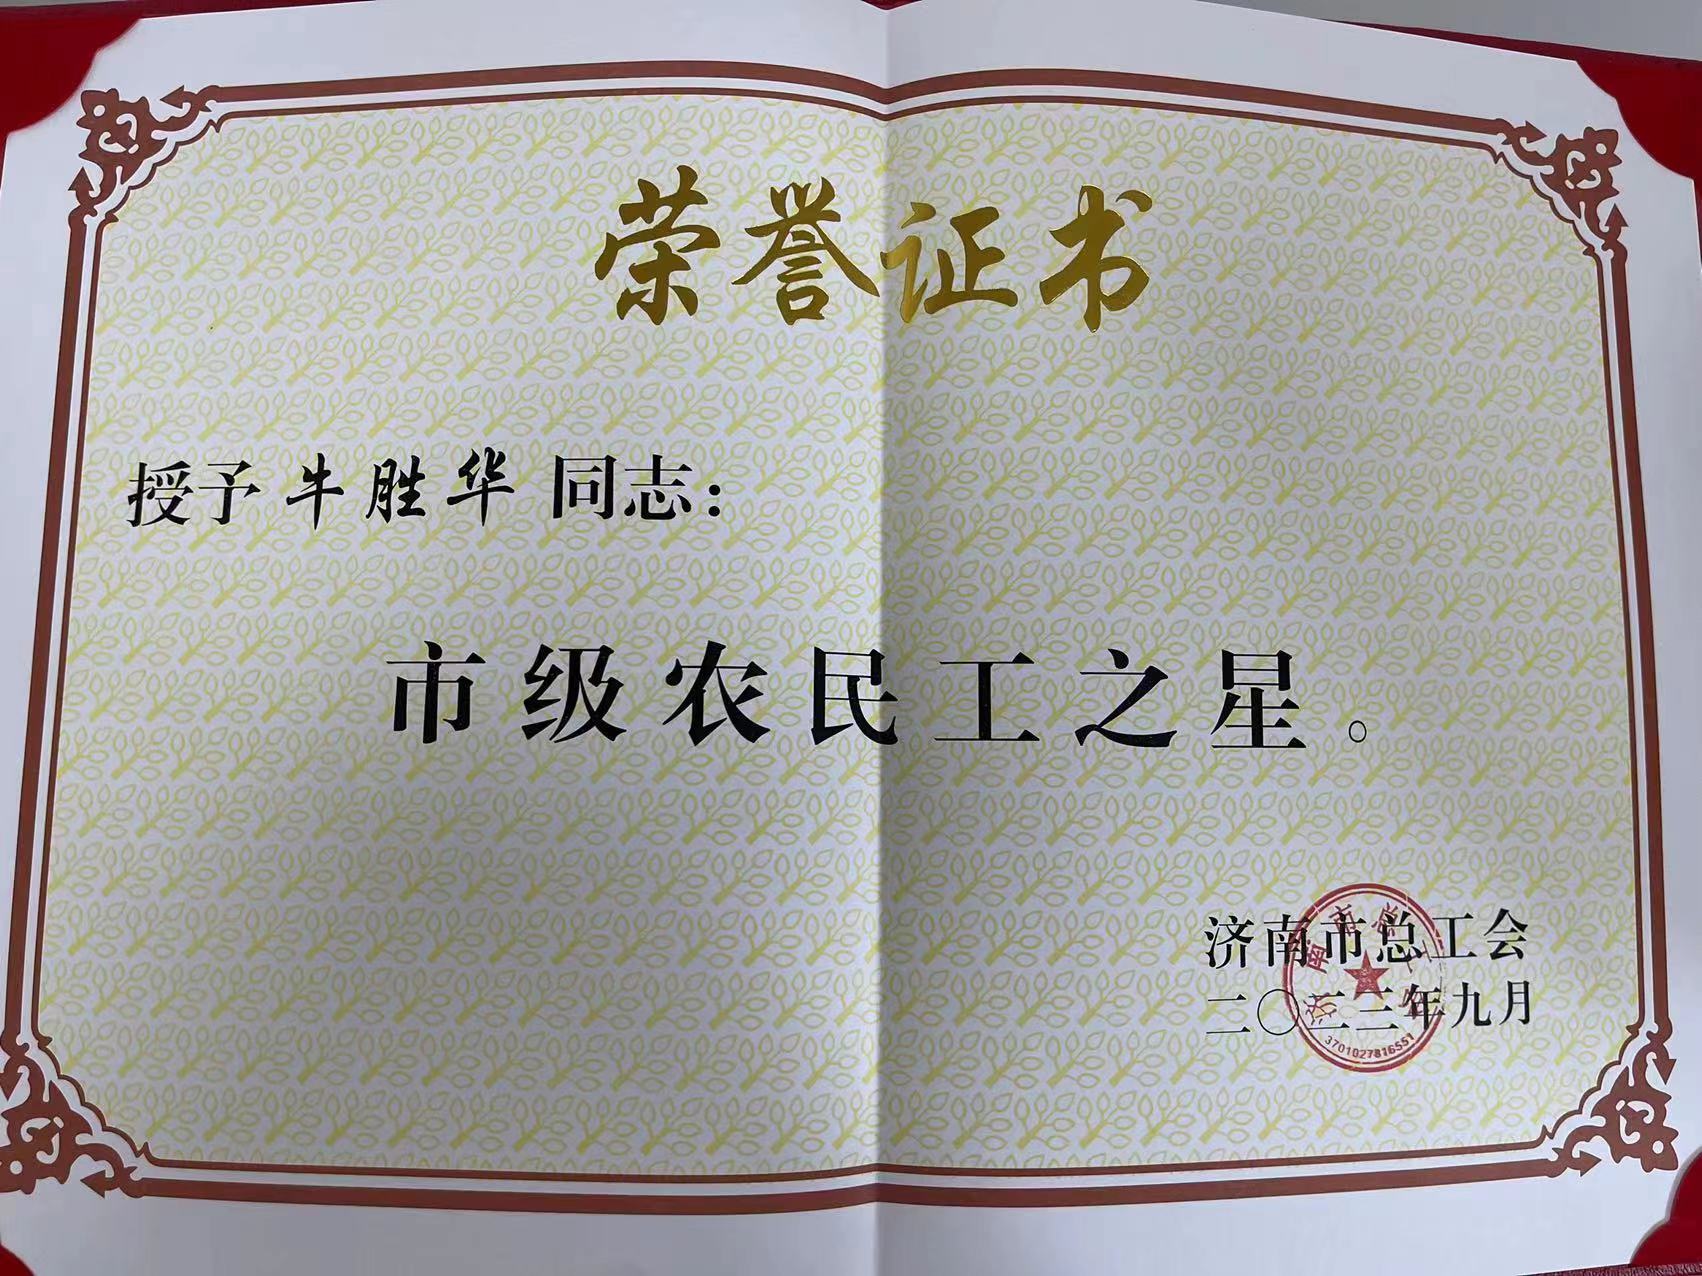 荣誉证书
授予 牛胜华 同志：
市级农民工之星。
济南市总工会
二〇二三年九月
济南市总工会
3701027816551